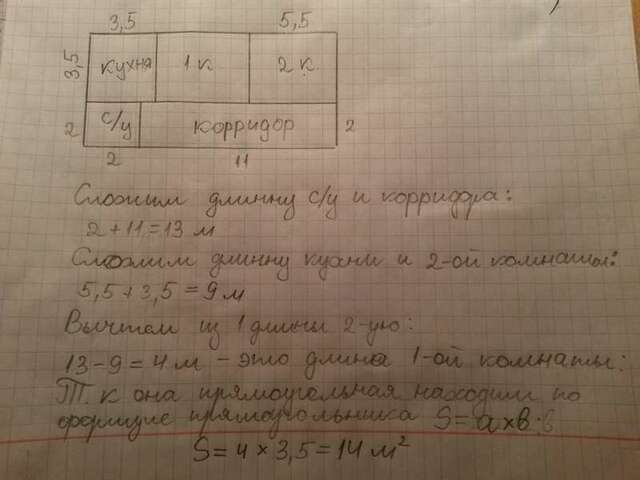 3,5 5,5
3,5 кухня 1 к 2 к.
2 с/у корридор 2
2 11
Сложим длинну с/у и корридора:
2 + 11 = 13 м
Сложим длинну кухни и 2-ой комнаты:
5,5 + 3,5 = 9 м
Вычтем из 1 длины 2-ую:
13 - 9 = 4 м - это длина 1-ой комнаты:
Т. к она прямоугольная находим по
формуле прямоугольника S = a × в
S = 4 × 3,5 = 14 м²